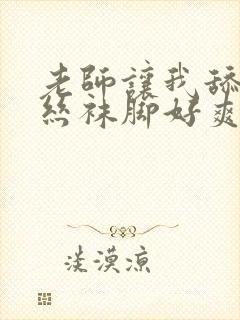 老師讓我舔
丝袜脚好爽
淡漠涼